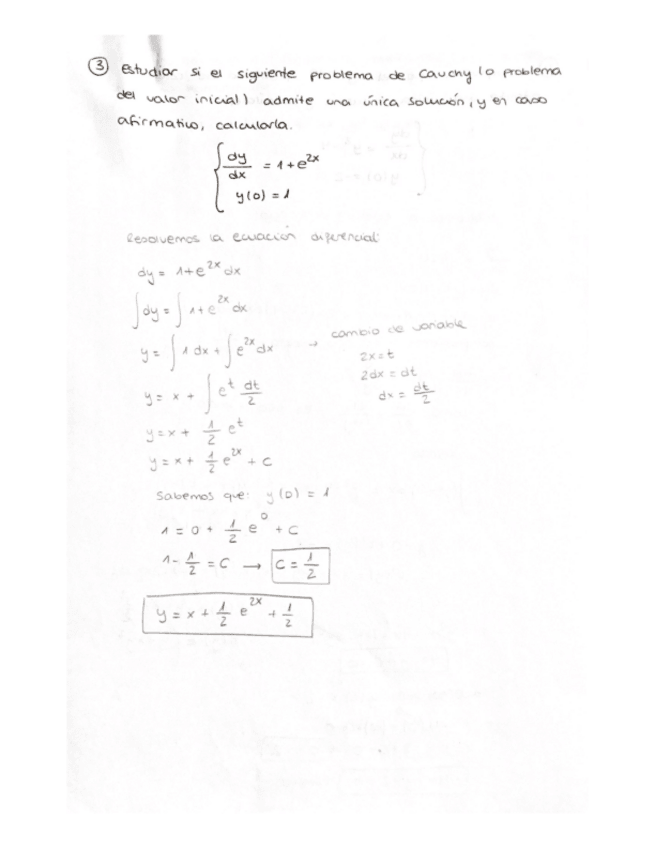 ③ Estudiar si el siguiente problema de Cauchy (o problema
del valor inicial) admite una única solución, y en caso
afirmativo, calcularla.
dy/dx = 1+e^2x
y(0) = 1
Resolvemos la ecuación diferencial:
dy = 1+e^2x dx
∫dy = ∫ 1+e^2x dx
y = ∫ 1 dx + ∫ e^2x dx → cambio de variable
2x = t
2dx = dt
dx = dt/2
y = x + ∫ e^t dt/2
y = x + 1/2 e^t
y = x + 1/2 e^2x + C
Sabemos que: y(0) = 1
1 = 0 + 1/2 e^0 + C
1 - 1/2 = C → C = 1/2
y = x + 1/2 e^2x + 1/2